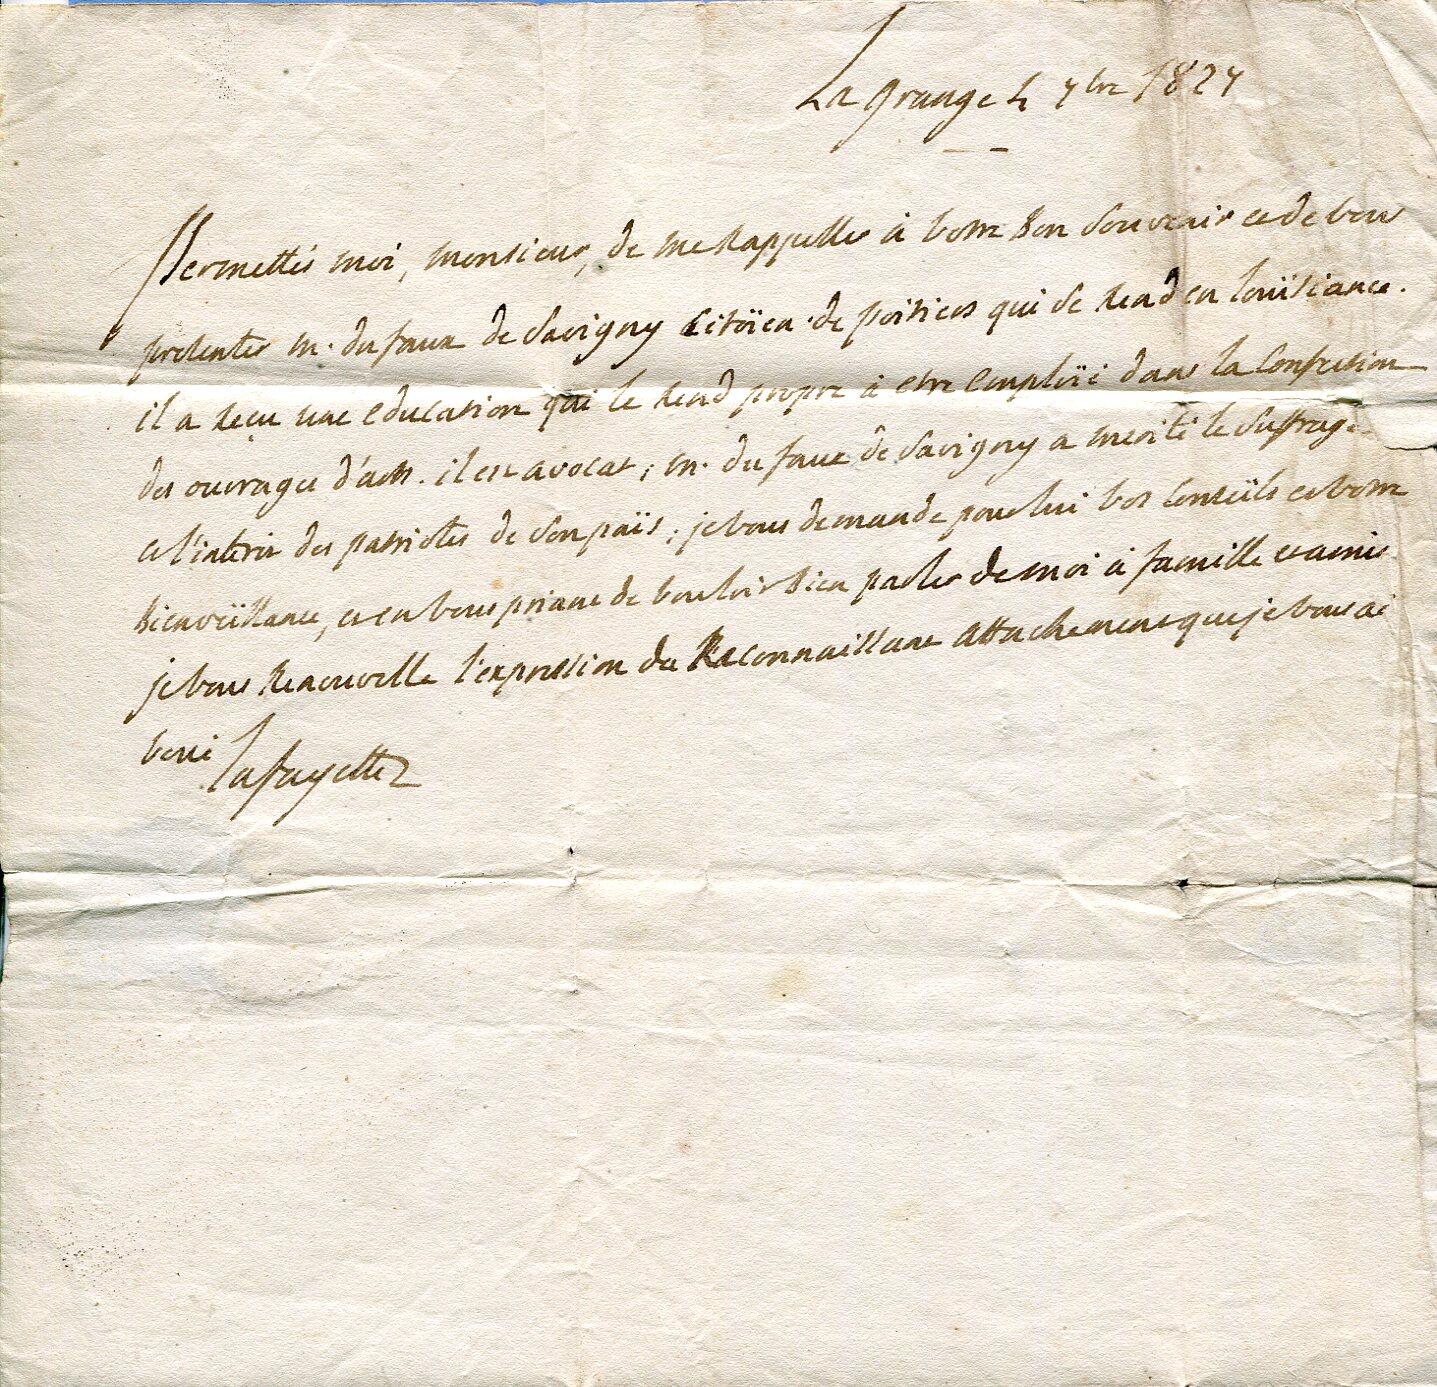 La grange 4 7bre 1827
Permettés moi, monsieur, de me Rappeller à votre Bon Souvenir et de vous
presenter m. du faux de Savigny Citoïen de poitiers qui Se Rend en louïsiane.
il a Reçu une education qui le Rend propre à etre emploïé dans la Confection
des ouvrages d'arts. il est avocat; m. du faux de Savigny a merité le Suffrage
et l'interêt des patriotes de Son païs; je vous demande pour lui vos Conseils et votre
Bienveillance, et en vous priant de vouloir Bien parler de moi à famille et amis
je vous Renouvelle l'expression du Reconnaissant attachement que je vous ai
voué
lafayette